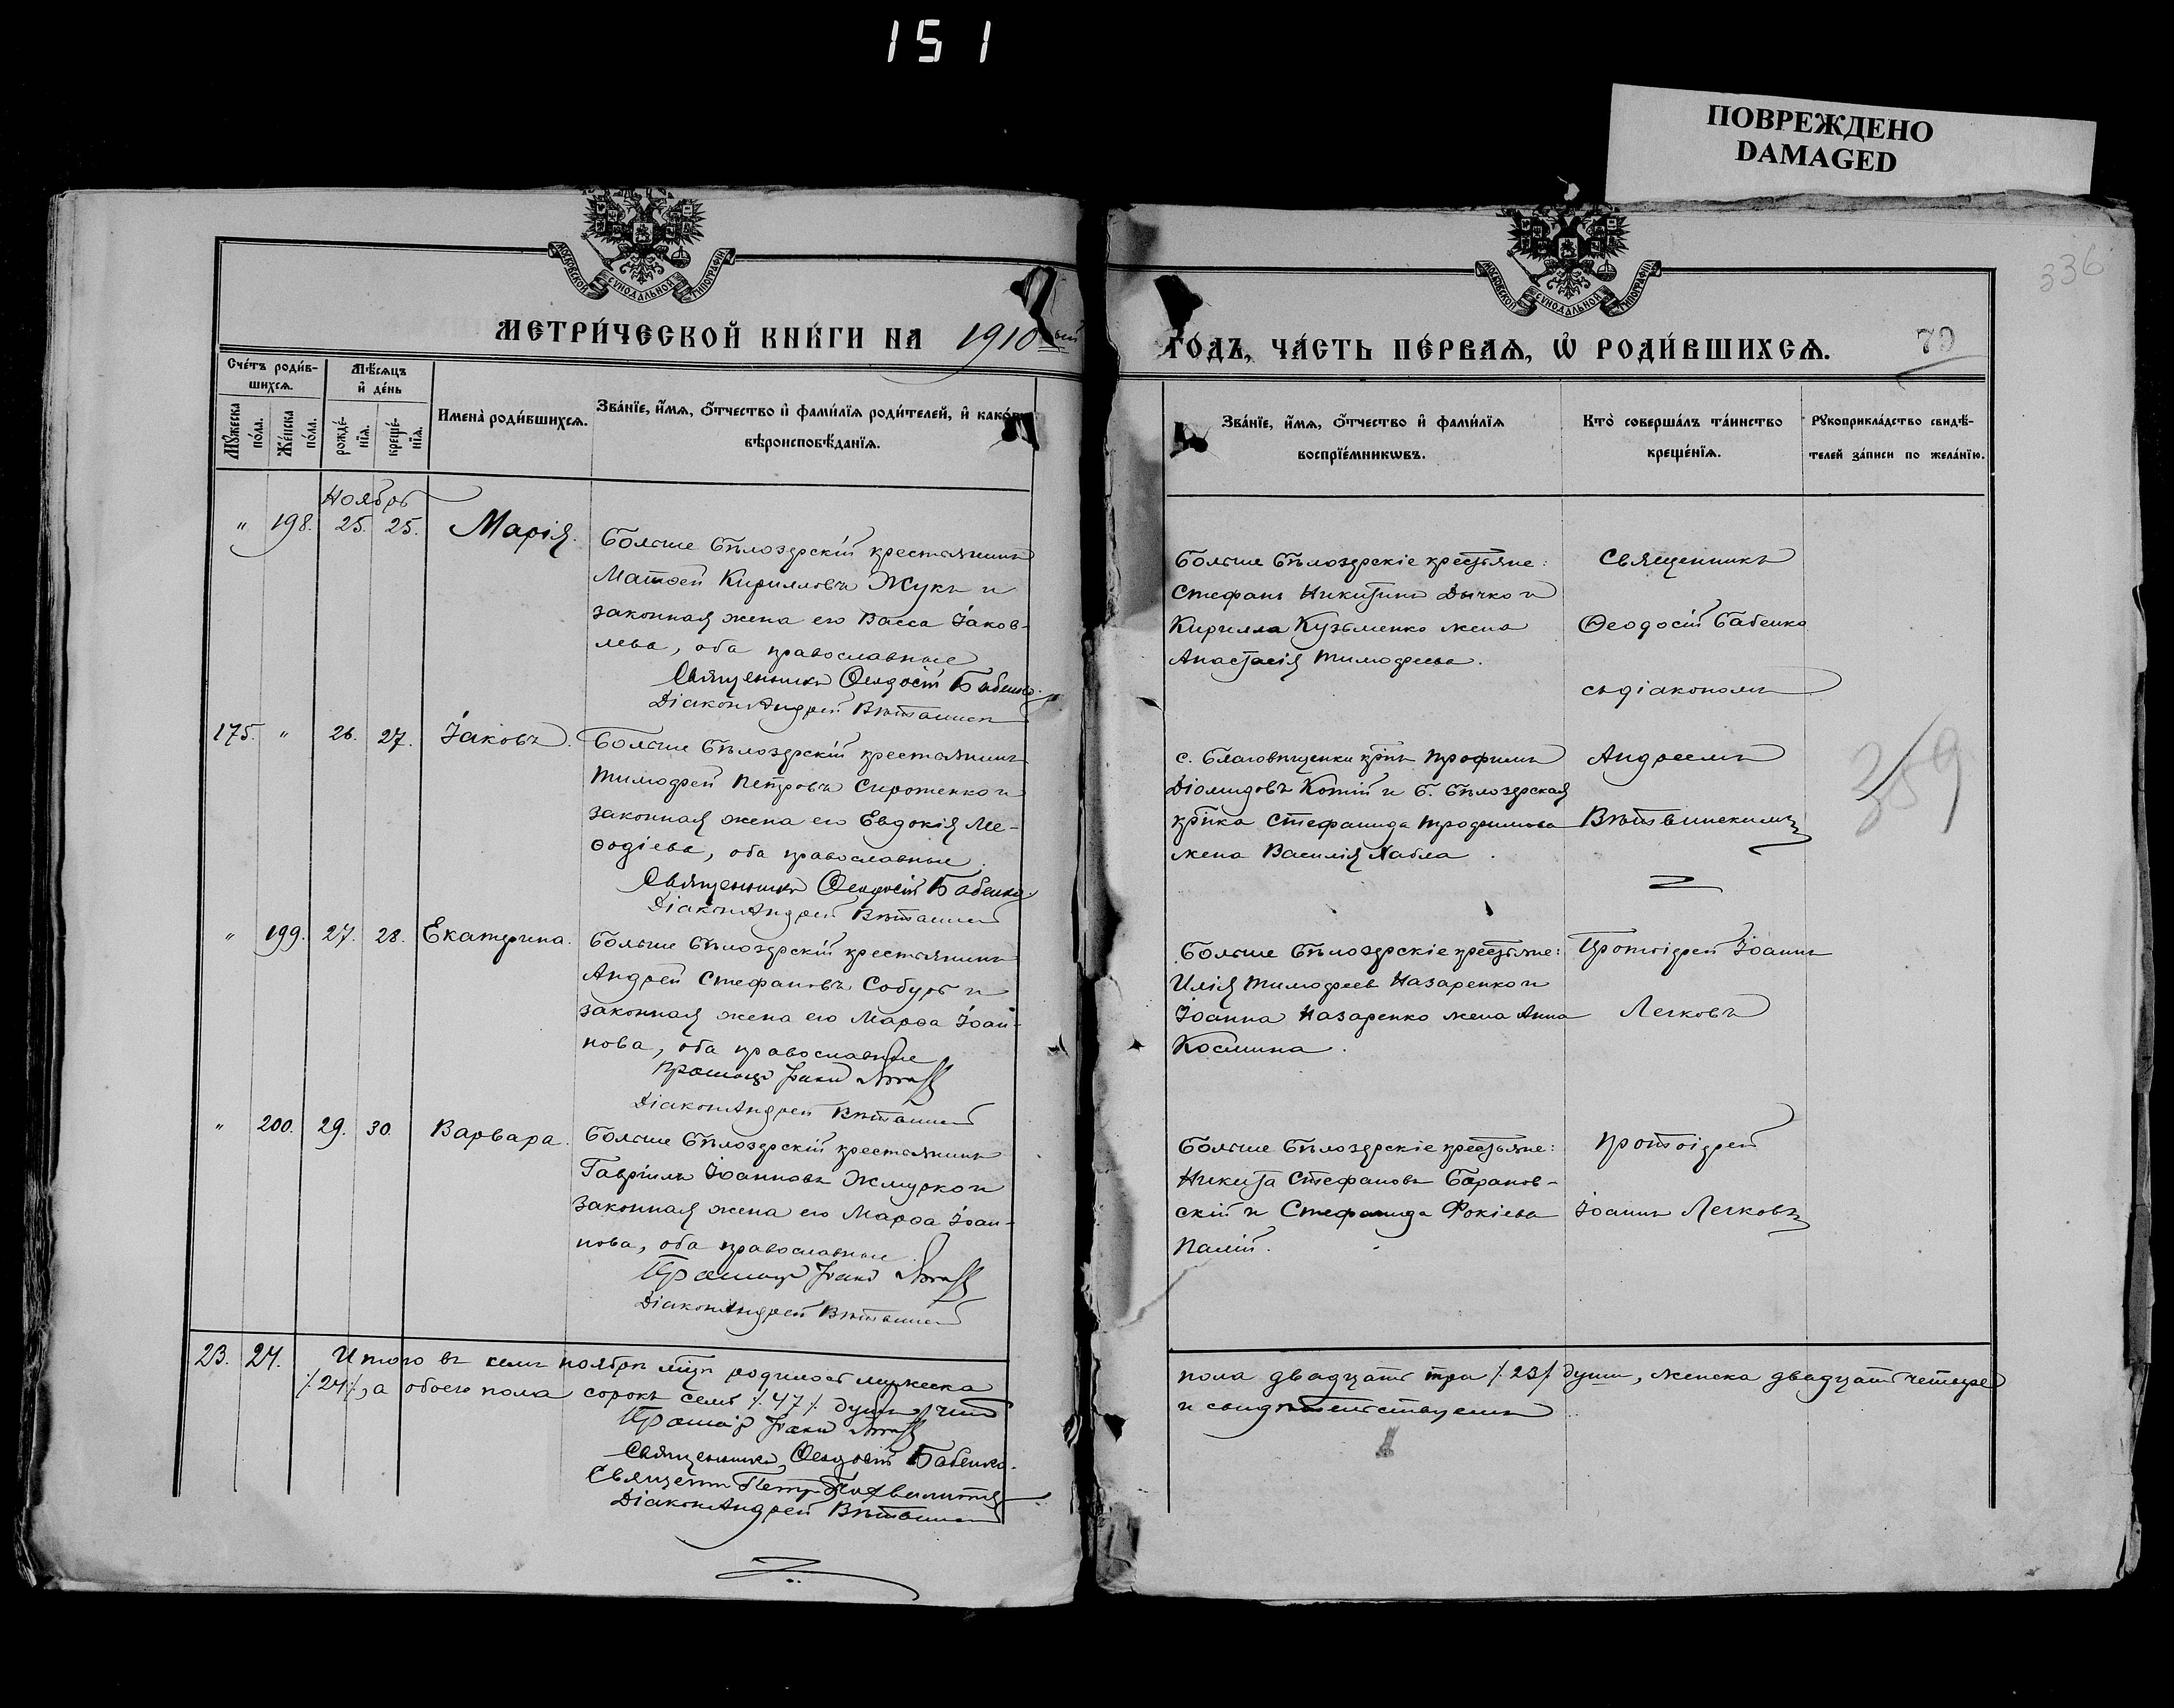 151
ПОВРЕЖДЕНО
DAMAGED
МОСКОВСКОЙ СУНОДАЛЬНОЙ ТИПОГРАФІИ
МОСКОВСКОЙ СУНОДАЛЬНОЙ ТИПОГРАФІИ
336
МЕТРИ́ЧЕСКОЙ КНИ́ГИ НА 1910 ый
ГО́ДЪ, ЧА́СТЬ ПЕ́РВАѦ, Ѡ҆ РОДИ́ВШИХСѦ.
79
Сче́тъ роди́в-
шихсѧ.
Мꙋ́жеска по́ла.
Же́нска по́ла.
Мѣ́сѧцъ
и҆ де́нь
рожде́-
нїѧ.
креще́-
нїѧ.
Имена̀ роди́вшихсѧ.
Зва́нїе, и҆́мѧ, ѻ҆́тчество и҆ фами́лїѧ роди́телей, и҆ како́гѡ
вѣроисповѣ́данїѧ.
Зва́нїе, и҆́мѧ, ѻ҆́тчество и҆ фами́лїѧ
воспрїе́мникѡвъ.
Кто̀ соверша́лъ та́инство
креще́нїѧ.
Рꙋкоприкла́дство свидѣ́-
телей за́писи по жела́нїю.
Ноябрь
" 198. 25. 25. Марія.
Больше Бѣлозерскій крестьянинъ
Матѳей Кирилловъ Жукъ и
законная жена его Васса Іаков-
лева, оба православные
Священникъ Ѳеодосій Бабенко.
Діаконъ Андрей
Больше Бѣлозерскіе крестьяне:
Стефанъ Никитинъ Дычко и
Кирилла Кузьменко жена
Анастасія Тимофеева.
Священникъ
Ѳеодосій Бабенко
съ діакономъ
175. " 26. 27. Іаковъ.
Больше Бѣлозерскій крестьянинъ
Тимофей Петровъ Сиротенко и
законная жена его Евдокія Ме-
ѳодіева, оба православные.
Священникъ Ѳеодосій Бабенко.
Діаконъ Андрей
с. Благовѣщенки кр‑нъ Трофимъ
Діомидовъ Котій и Б. Бѣлозерская
кр‑нка Стефанида Трофимова
жена Василія Хабла.
Андреемъ
Вѣтвинскимъ
359
" 199. 27. 28. Екатерина.
Больше Бѣлозерскій крестьянинъ
Андрей Стефановъ Собурь и
законная жена его Марѳа Іоан-
нова, оба православные
Протоіер Іоаннъ
Діаконъ Андрей
Больше Бѣлозерскіе крестьяне:
Илія Тимофеев Назаренко и
Іоанна Назаренко жена Анна
Космина.
Протоіерей Іоаннъ
Легковъ
" 200. 29. 30. Варвара.
Больше Бѣлозерскій крестьянинъ
Гавріилъ Іоанновъ Жмурко и
законная жена его Марѳа Іоан-
нова, оба православные.
Протоіер Іоаннъ
Діаконъ Андрей
Больше Бѣлозерскіе крестьяне:
Никита Стефановъ Баранов-
скій и Стефанида Фокіева
Палій.
Протоіерей
Іоаннъ Легковъ
23. 24. Итого въ семъ ноябрѣ м‑цѣ родилось мужеска
пола двадцать три /.23/. души, женска двадцать четыре
/.24/., а обоего пола сорокъ семь /.47/. душъ, чт‑о
и свидѣтельствуемъ
Протоіер Іоаннъ
Священникъ Ѳеодосій Бабенко.
Священникъ Петръ
Діаконъ Андрей